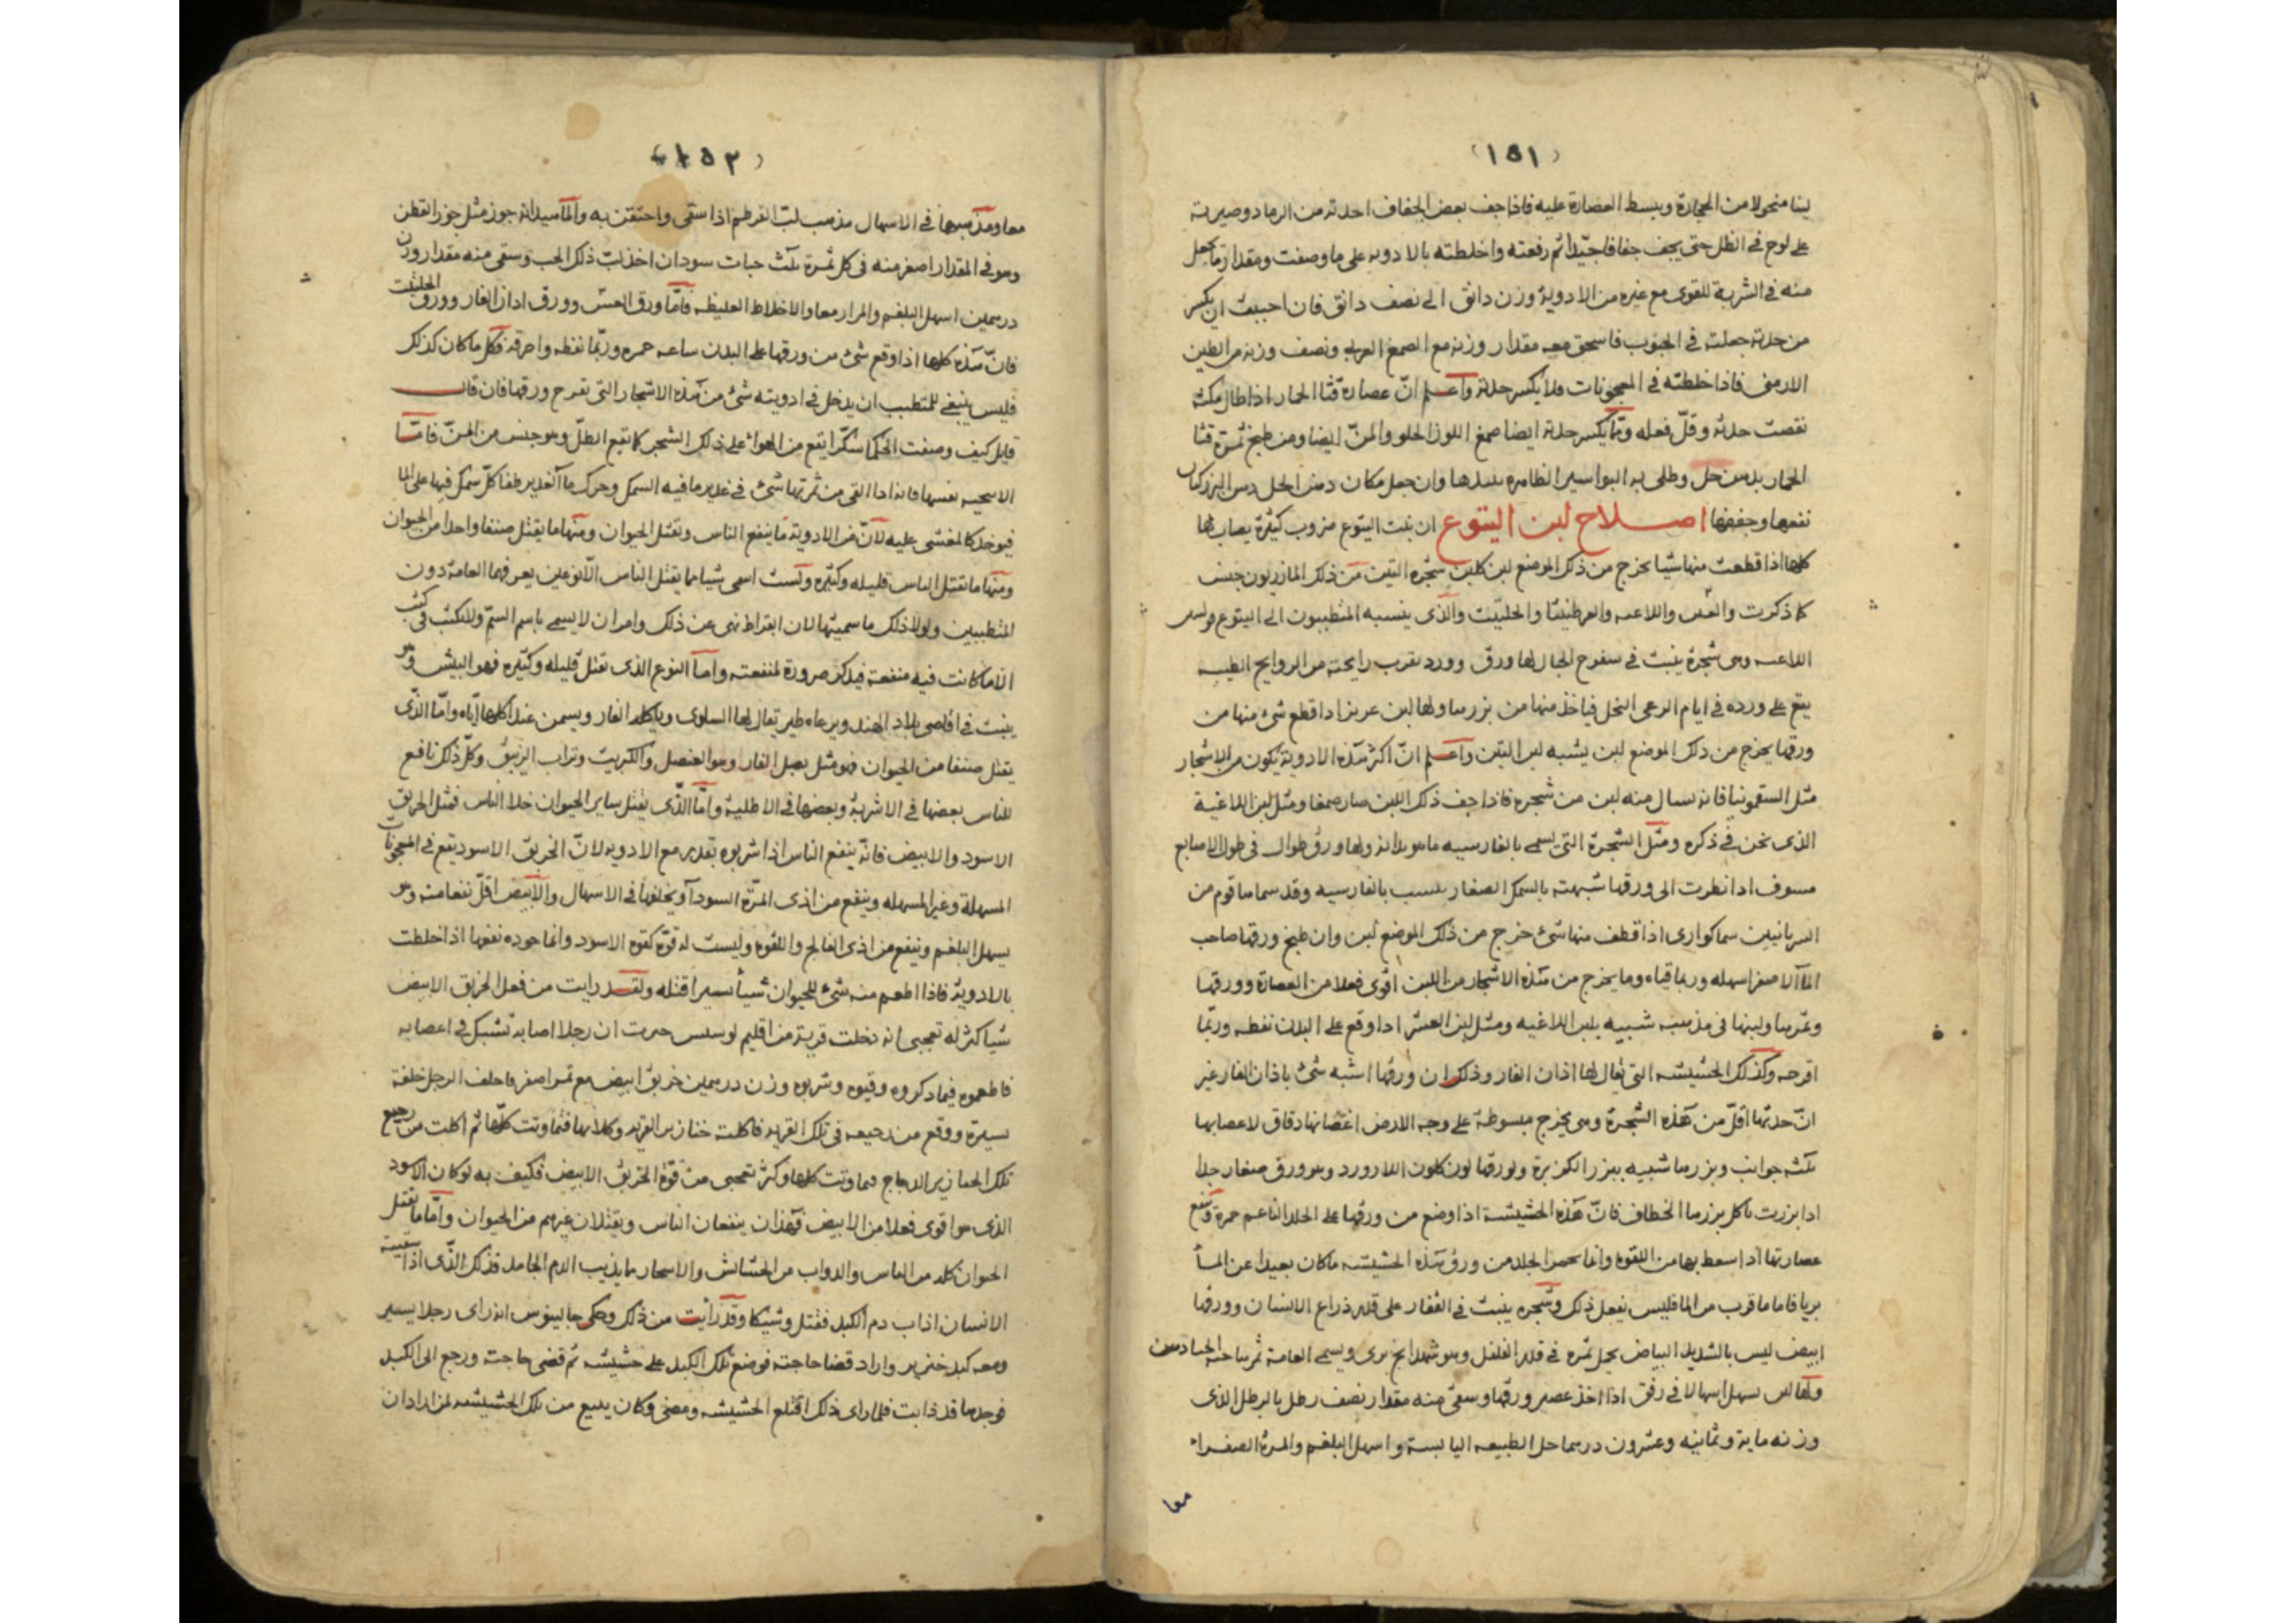 (١٥١)
منحولا من الحجارة ويبسط العصارة عليه فاذا جف بعض الجفاف اخذته من الرماد وصيرته
على لوح فى الظل حتى يجف جفافا جيدا ثم رفعته واخلطته بالادويه على ما وصفت ومقدار ما يجعل
منه فى الشربة للقوى مع غيره من الادوية وزن دانق الى نصف دانق فان احببت ان يكسر
من حدته جعلته فى الحبوب فاسحق معه مقدار وزنه مع الصمغ العربى ونصف وزنه من الطين
الارمنى فاذا خلطته فى المعجونات فلا يكسر حدته واعلم انّ عصارة قثا الحمار اذا طال مكثه
نقصت حدته وقلّ فعله وممّا يكسر حدته ايضا صمغ اللوز الحلو والمرّ ايضا ومن طبخ ثمرة قثا
الحمار بدهن حل وطلى به البواسير الظاهرة وان جعل مكان دهن الحل دهن البزركتان
نفعها وجففها اصلاح لبن اليتوع ان نبت اليتوع ضروب كثيرة يصاب لها
كلها اذا قطعت منها شيا يخرج من ذلك الموضع لبن كلبن شجره التين من ذلك المازريون جنس
كما ذكرت والعشر واللاعيه والعرطنيثا والحلتيت والذى ينسبه المتطببون الى اليتوع
اللاعيه وهى شجرة ينبت فى سفوح الجبال لها ورق وورد يقرب رايحته من الروايح الطيبه
يقع على ورده فى ايام الرعى النحل فياخذ منها من بزرها ولها لبن عزيز اذا قطع شئ منها من
ورقها يخرج من ذلك الموضع لبن يشبه لبن التين واعلم انّ اكثر هذه الادوية يكون من الاشجار
مثل السقمونيا فانه يسال منه لبن من شجره فاذا جف ذلك اللبن صار صمغا ومثل لبن اللاغية
الذى نحن فى ذكره ومثل الشجرة التى يسمى بالفارسيه ماهودانه ولها ورق طوال فى طول الاصابع
اذا نظرت الى ورقها شبهته بالسمك الصغار بالفارسيه وقد سماها قوم من
السريانيين اذا قطف منها شئ خرج من ذلك الموضع لبن وان طبخ ورقها صاحب
الما الاصفر اسهله وربما قياه وما يخرج من هذه الاشجار من اللبن اقوى فعلا من العصارة وورقها
وثمرها ولبنها فى مذهبه شبيه بلبن اللاغيه ومثل لبن العشر اذا وقع على البدن نفطه وربّما
اقرحه وكذلك الحشيشه التى يقال لها اذان الفار وذلك ان ورقها اشبه شئ باذان الفار غير
انّ حدتها اقلّ من هذه الشجرة وهى يخرج مبسوطة على وجه الارض اغصانها دقاق لاعصابها
ثلثه جوانب وبزرها شبيه ببزر الكزبرة ولورقها لون كلون اللازورد وهو ورق صغار جدا
اذا بزرت ياكل بزرها الخطاف فانّ هذه الحشيشة اذا وضع من ورقها على الجلد الناعم حمرة وينفع
عصارتها اذا سعط بها من اللقوه وانما يحمر الجلد من ورق هذه الحشيشه ما كان بعيدا عن الماء
بريا فاما ما قرب من الما فليس يفعل ذلك وشجره ينبت فى القفار على قدر ذراع الانسان وورقها
ابيض ليس بالشديد البياض يحمل ثمره فى قدر الفلفل وهو شهدانج برى ويسمى العامة ثمرها حبه
يسهل اسهالا فى رفق اذا اخذ عصير ورقها وسقى منه مقدار نصف رطل بالرطل الذى
وزنه ماية وثمانيه وعشرون درهما حل الطبيعه اليابسة واسهل البلغم والمرة الصفراء
معا
(١٥٢)
معا ومذهبها فى الاسهال مذهب لبّ القرطم اذا سقى واحتقن به والماسيدانه جوز مثل جوز القطن
وهو فى المقدار اصغر منه فى كل ثمرة ثلث حبات سودان اخذ لبّ ذلك الحب وسقى منه مقدار وزن
درهمين اسهل البلغم والمرار معا والاخلاط الغليظه فامّا ورق العشر وورق اذان الفار وورق الحلتيت
فانّ هذه كلها اذا وقع شئ من ورقها على البدن ساعه حمره وربّما نفطه واحرقه فكل ما كان كذلك
فليس ينبغى للمتطبب ان يدخل فى ادويته شئ من هذه الاشجار التى تقرح ورقها فان قال
قايل كيف وصفت الحكما سكّرا يقع من الهوا على ذلك الشجر كما يقع الطلّ وهو جنس من المنّ فامّا
نفسها فانه اذا القى من ثمرتها شئ فى غدير ما فيه السمك وحرك ما الغدير طفا كلّ سمك فيها على الما
فيوخذ كالمغشى عليه لانّ من الادوية ما ينفع الناس وتقتل الحيوان ومنها ما يقتل صنفا واحدا من الحيوان
ومنها ما تقتل الناس قليله وكثيره ولست اسمى شيا مما يقتل الناس الّا نوعين يعرفهما العامة دون
المتطببين ولولا ذلك ما سميتها لان ابقراط نهى عن ذلك وامر ان لا يسمى باسم السمّ ولا يكتب فى كتب
الّا ما كانت فيه منفعة فيذكر ضرورة لمنفعته واما النوع الذى تقتل قليله وكثيره فهو البيش وهو
ينبت فى اقاصى بلاد الهند ويرعاه طير يقال لها السلوى وياكله الفار ويسمن عند اكلها ايّاه وامّا الذى
يقتل صنفا من الحيوان فهو مثل بصل الفار وهو العنصل والكبريت وتراب الزيبق وكلّ ذلك نافع
للناس بعضها فى الاشربة وبعضها فى الاطلية وامّا الذّى يقتل ساير الحيوان خلا الناس فمثل الخربق
الاسود والابيض فانّه ينفع الناس اذا شربوه بقدر مع الادويه لانّ الخربق الاسود يقع فى المعجونات
المسهلة وغير المسهله وينفع من اذى المرّة السودا ويخلفها فى الاسهال والابيض اقلّ نفعا منه وهو
يسهل البلغم وينفع من اذى الفالج واللقوه وليست له قوّة كقوه الاسود وانما جوده نفعها اذا خلطت
بالادوية فاذا اطعم منه شئ للحيوان شياً يسيرا قتله ولقد رايت من فعل الخربق الابيض
شيا كثر له تعجبى انه دخلت قرية من اقليم ان رجلا اصابه تشبك فى اعصابه
فاطعموه فيما ذكروه وقيوه وشربوه وزن درهمين خربق ابيض مع تمر اصفر فاختلف الرجل خلفة
يسيرة ووقع من رجيعه فى تلك القريه فاكلته خنازير القريه وكلابها فتماوتت كلّها ثم اكلت من رجيع
تلك الخنازير الدجاج فتماوتت كلها وكثر تعجبى من قوّة الخربق الابيض فكيف به لو كان الاسود
الذى هو اقوى فعلا من الابيض فهذان ينفعان الناس ويقتلان غيرهم من الحيوان وامّا ما يقتل
الحيوان كله من الناس والدواب من الحشائش والاشجار ما يذيب الدم الجامد فذلك الذّى اذا سقيته
الانسان اذاب دم الكبد فقتل وشيكا وقد رايت من ذلك وحكى جالينوس انه راى رجلا يسير
ومعه كبد خنزير واراد قضا حاجته فوضع تلك الكبد على حشيشه ثم قضى حاجته ورجع الى الكبد
فوجدها قد ذابت فلما راى ذلك اقتلع الحشيشه ومضى وكان يبيع من تلك الحشيشه لمن اراد ان